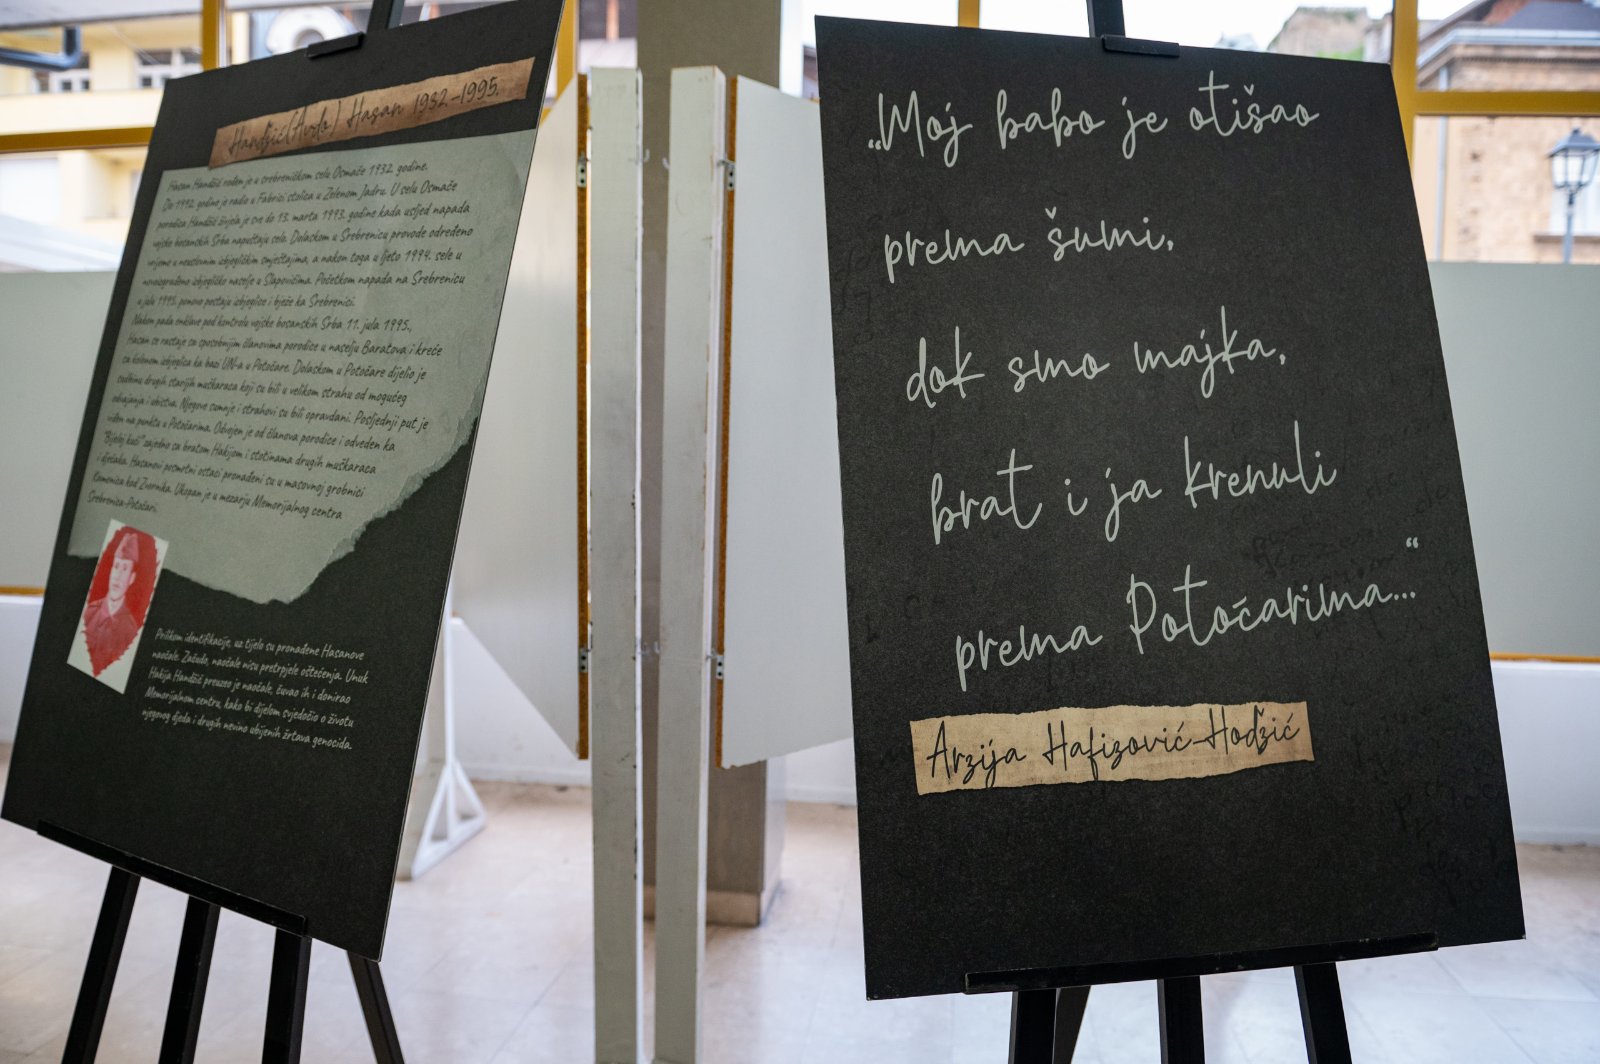 Handžić (Avdo) Hasan 1932.-1995.
Hasan Handžić rođen je u srebreničkom selu Osmače 1932. godine.
Do 1992. godine je radio u Fabrici stolica u Zelenom Jadru. U selu Osmače
porodica Handžić živjela je sve do 13. marta 1993. godine kada usljed napada
vojske bosanskih Srba napuštaju selo. Dolaskom u Srebrenicu provode određeno
vrijeme u neuslovnim izbjegličkim smještajima, a nakon toga u ljeto 1994. sele u
novoizgrađeno izbjegličko naselje u Slapovićima. Početkom napada na Srebrenicu
u julu 1995. ponovo postaju izbjeglice i bježe ka Srebrenici.
Nakon pada enklave pod kontrolu vojske bosanskih Srba 11. jula 1995.,
Hasan se rastaje sa sposobnijim članovima porodice u naselju Baratova i kreće
sa kolonom izbjeglica ka bazi UN-a u Potočare. Dolaskom u Potočare dijelio je
sudbinu drugih starijih muškaraca koji su bili u velikom strahu od mogućeg
odvajanja i ubistva. Njegove sumnje i strahovi su bili opravdani. Posljednji put je
viđen na punktu u Potočarima. Odvojen je od članova porodice i odveden ka
"Bijeloj kući" zajedno sa bratom Hakijom i stotinama drugih muškaraca
i dječaka. Hasanovi posmrtni ostaci pronađeni su u masovnoj grobnici
Kamenica kod Zvornika. Ukopan je u mezarju Memorijalnog centra
Srebrenica-Potočari.
Prilikom identifikacije, uz tijelo su pronađene Hasanove
naočale. Začudo, naočale nisu pretrpjele oštećenja. Unuk
Hakija Handžić preuzeo je naočale, čuvao ih i donirao
Memorijalnom centru, kako bi dijelom svjedočio o životu
njegovog djeda i drugih nevino ubijenih žrtava genocida.
„Moj babo je otišao
prema šumi,
dok smo majka,
brat i ja krenuli
prema Potočarima...“
Arzija Hafizović-Hodžić